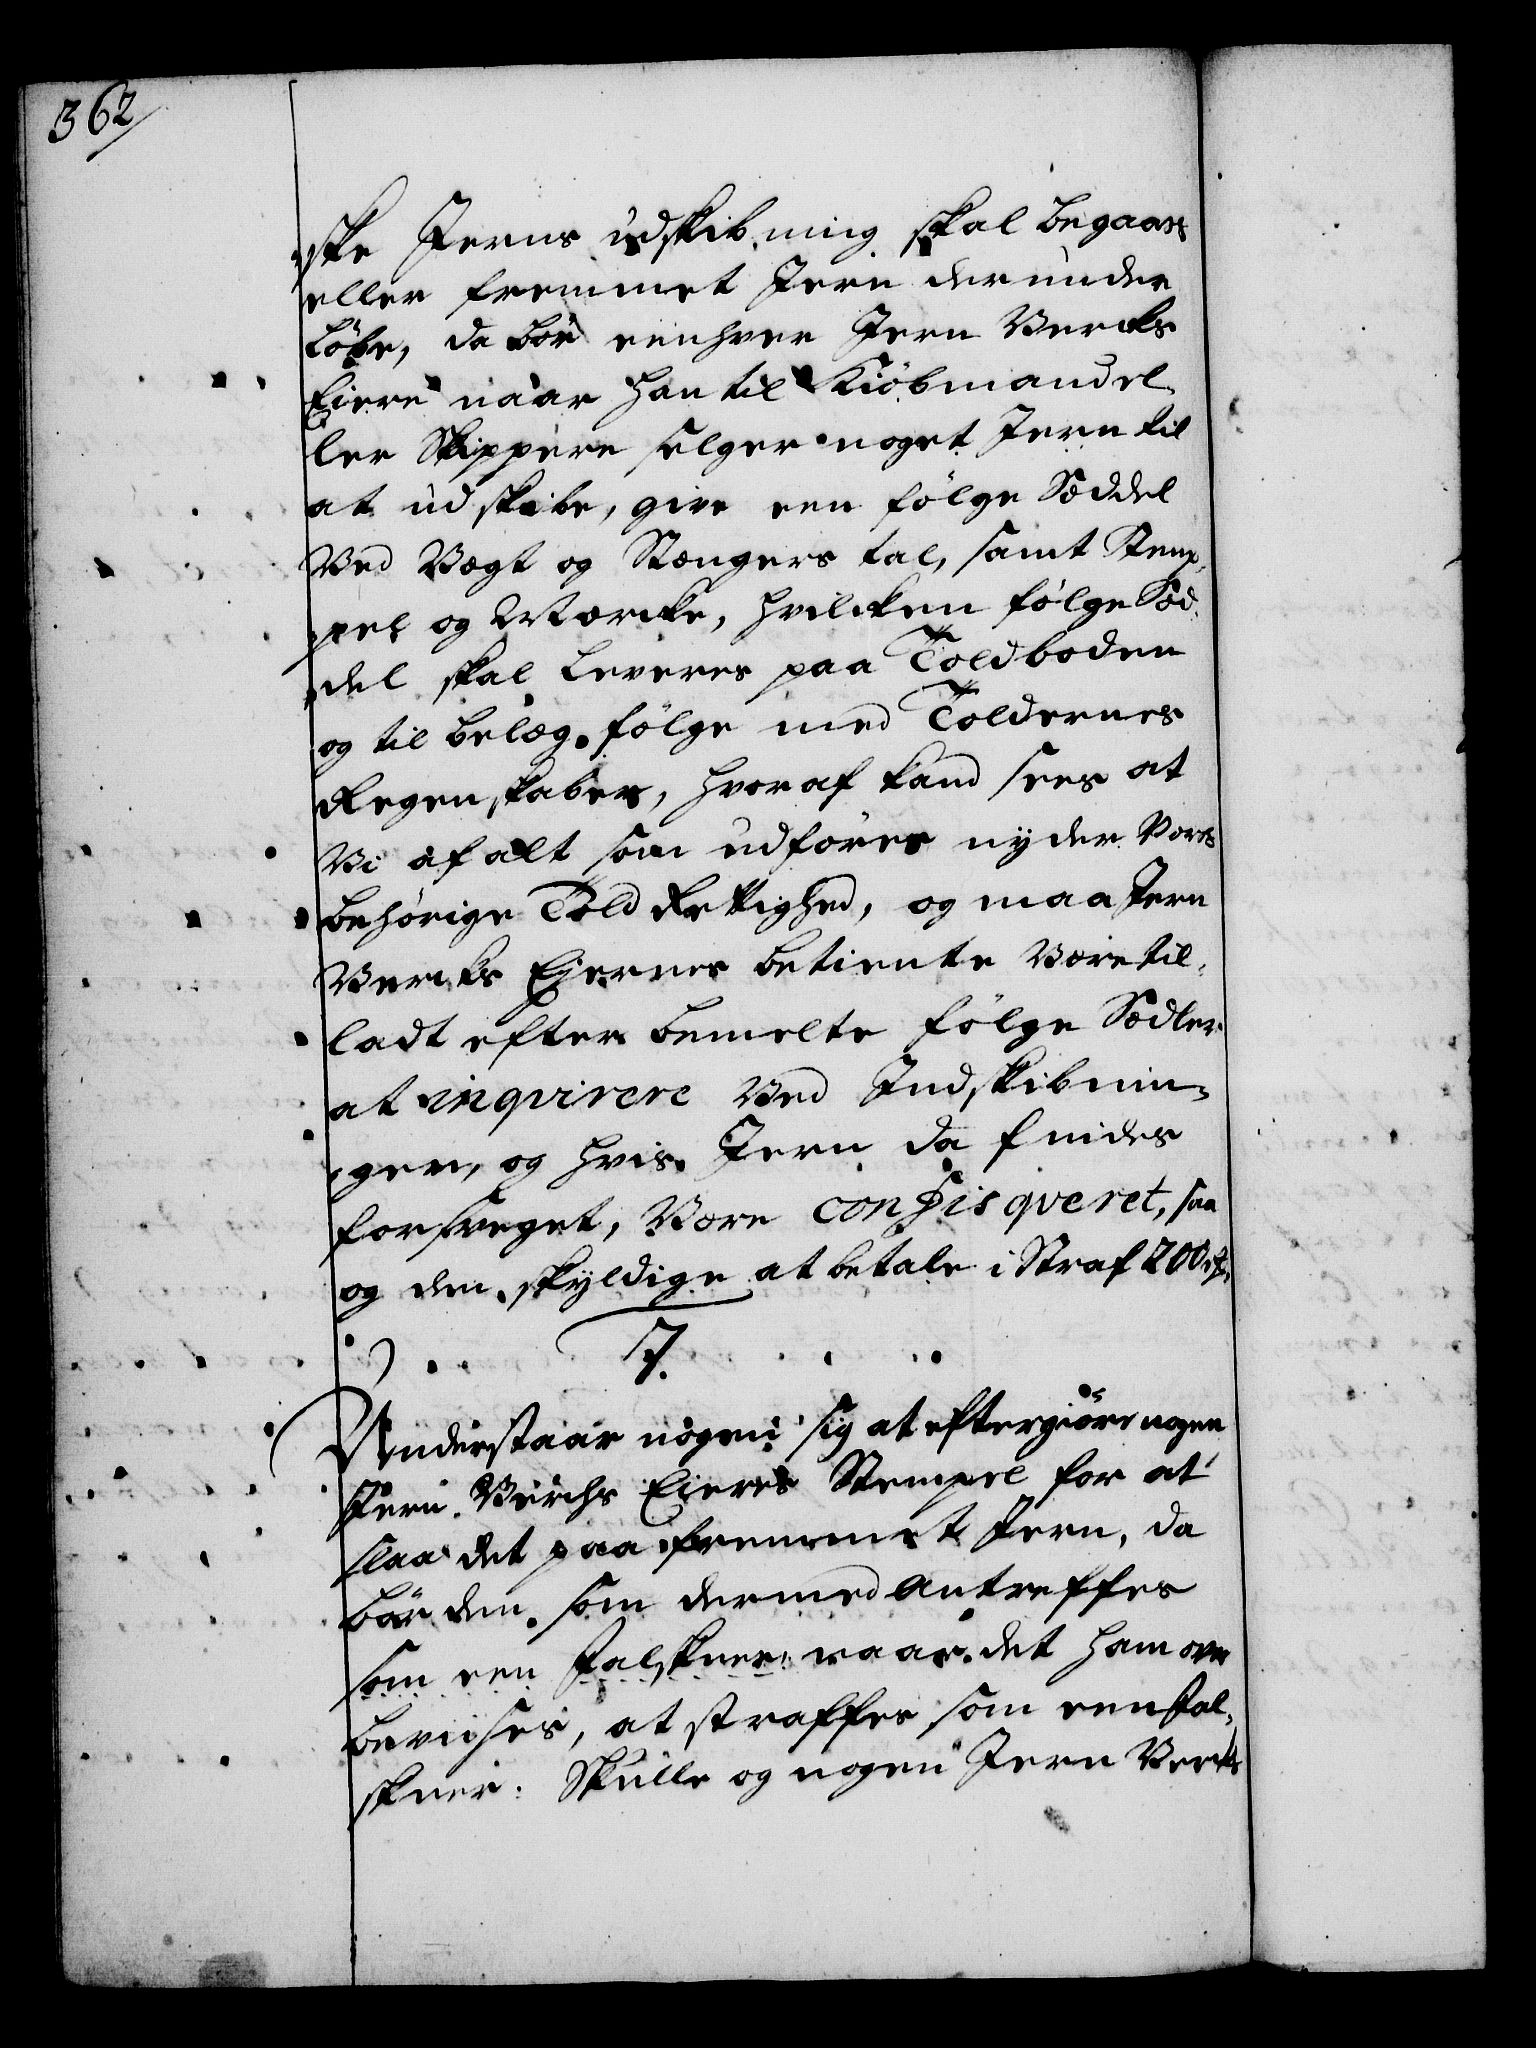 362
ske Jerns udskibning skal begaaes
eller fremmet Jern derunder
löbe, da bör eenhver Jern Vercks
Eiere naar han til Kiöbmand el¬
ler Skippere selger noget Jern til
at udskibe, give een fölge Sæddel
Ved Vægt og Stængers tal, samt Stem¬
pel og Mærcke, hvilcken fölge Sæd¬
del skal leveres paa Toldboden
og til belæg fölge med Toldernes
Regenskaber, hvoraf kand sees at
Vi af alt som udföres nyder Vores
behörige Told Rettighed, og maa Jern
Vercks Ejernes betiente Være til¬
ladt efter bemelte fölge Sædler
at inqvirere Ved Indskibnin¬
gen, og hvis Jern da findes
forsveget, Være confisqveret, saa
og den skyldige at betale i Straf 200 rdr.
7.
Understaar nogen sig at eftergiöre nogen
Jern Verchs Eieres Stempel for at
slaa det paa fremmet Jern, da
bör den som dermed antreffes
som een Falskner, naar det ham over
bevises, at straffes som een Fal¬
skner: Skulle og nogen Jern Vercks